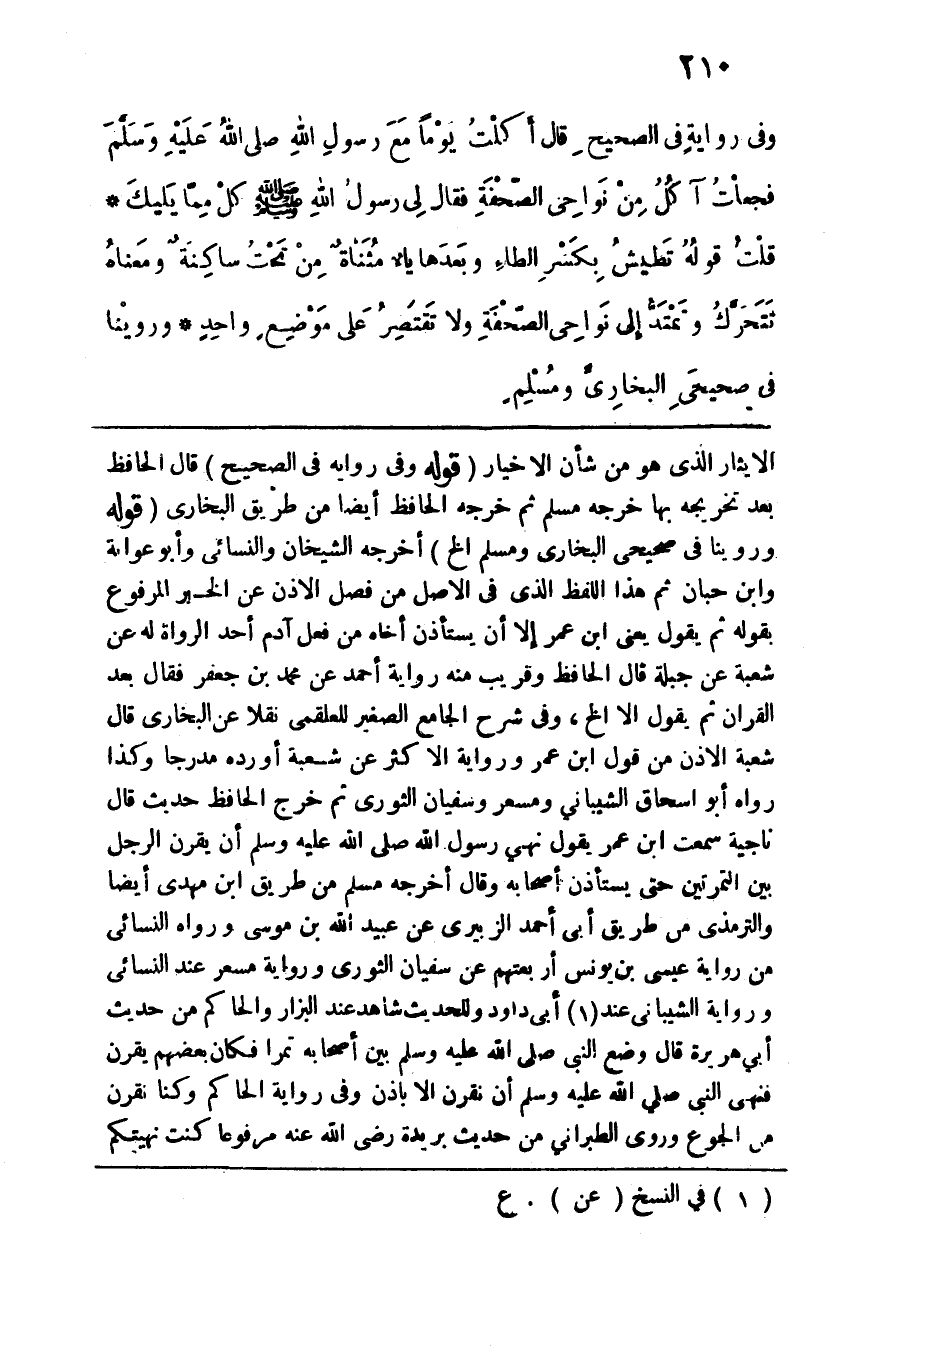 ٢١٠
وفى روايةٍ فى الصحيحِ قال أَكَلْتُ يَوْماً مَعَ رسولِ اللهِ صلى اللهُ عَلَيْهِ وَسَلَّمَ
فجعلْتُ آكُلُ مِنْ نَواحِى الصَّحْفَةِ فقال لِى رسولُ اللهِ ﷺ كُلْ مِمَّا يَلِيكَ *
قلتُ قولُهُ تَطِيشُ بِكَسْرِ الطاءِ وبَعدَها ياءٌ مُثَنَاةٌ مِنْ تَحْتُ ساكِنَةٌ ومَعناهُ
تَتَحَرَّكُ وتَمْتَدُّ إلى نَواحِى الصَّحْفَةِ ولا تَقْتَصِرُ عَلى مَوْضِعٍ واحِدٍ * وروينا
فى صحيحَىِ البخارِىِّ ومُسْلِمٍ
الايثار الذى هو من شأن الاخيار ( قوله وفى روايه فى الصحيح ) قال الحافظ
بعد تخريجه بها خرجه مسلم ثم خرجه الحافظ أيضا من طريق البخارى ( قوله
وروينا فى صحيحى البخارى ومسلم الخ ) أخرجه الشيخان والنسائى وأبوعوانة
وابن حبان ثم هذا اللفظ الذى فى الاصل من فصل الاذن عن الخبر المرفوع
بقوله ثم يقول يعنى ابن عمر إلا أن يستأذن أخاه من فعل آدم أحد الرواة له عن
شعبة عن جبلة قال الحافظ وقريب منه رواية أحمد عن محمد بن جعفر فقال بعد
القران ثم يقول الا الخ ، وفى شرح الجامع الصغير للعلقمى نقلا عن البخارى قال
شعبة الاذن من قول ابن عمر ورواية الاكثر عن شعبة أورده مدرجا وكذا
رواه أبو اسحاق الشيباني ومسعر وسفيان الثورى ثم خرج الحافظ حديث قال
ناجية سمعت ابن عمر يقول نهي رسول الله صلى الله عليه وسلم أن يقرن الرجل
بين التمرتين حتى يستأذن أصحابه وقال أخرجه مسلم من طريق ابن مهدى أيضا
والترمذى من طريق أبى أحمد الزبيرى عن عبيد الله بن موسى ورواه النسائى
من رواية عيسى بن يونس أربعتهم عن سفيان الثورى ورواية مسعر عند النسائى
ورواية الشيبانى عند (١) أبى داود وللحديث شاهد عند البزار والحاكم من حديث
أبى هريرة قال وضع النبى صلى الله عليه وسلم بين أصحابه تمرا فكان بعضهم يقرن
فنهى النبى صلي الله عليه وسلم أن نقرن الا باذن وفى رواية الحاكم وكنا نقرن
من الجوع وروى الطبراني من حديث بريدة رضى الله عنه مرفوعا كنت نهيتكم
( ١ ) في النسخ ( عن ) . ع